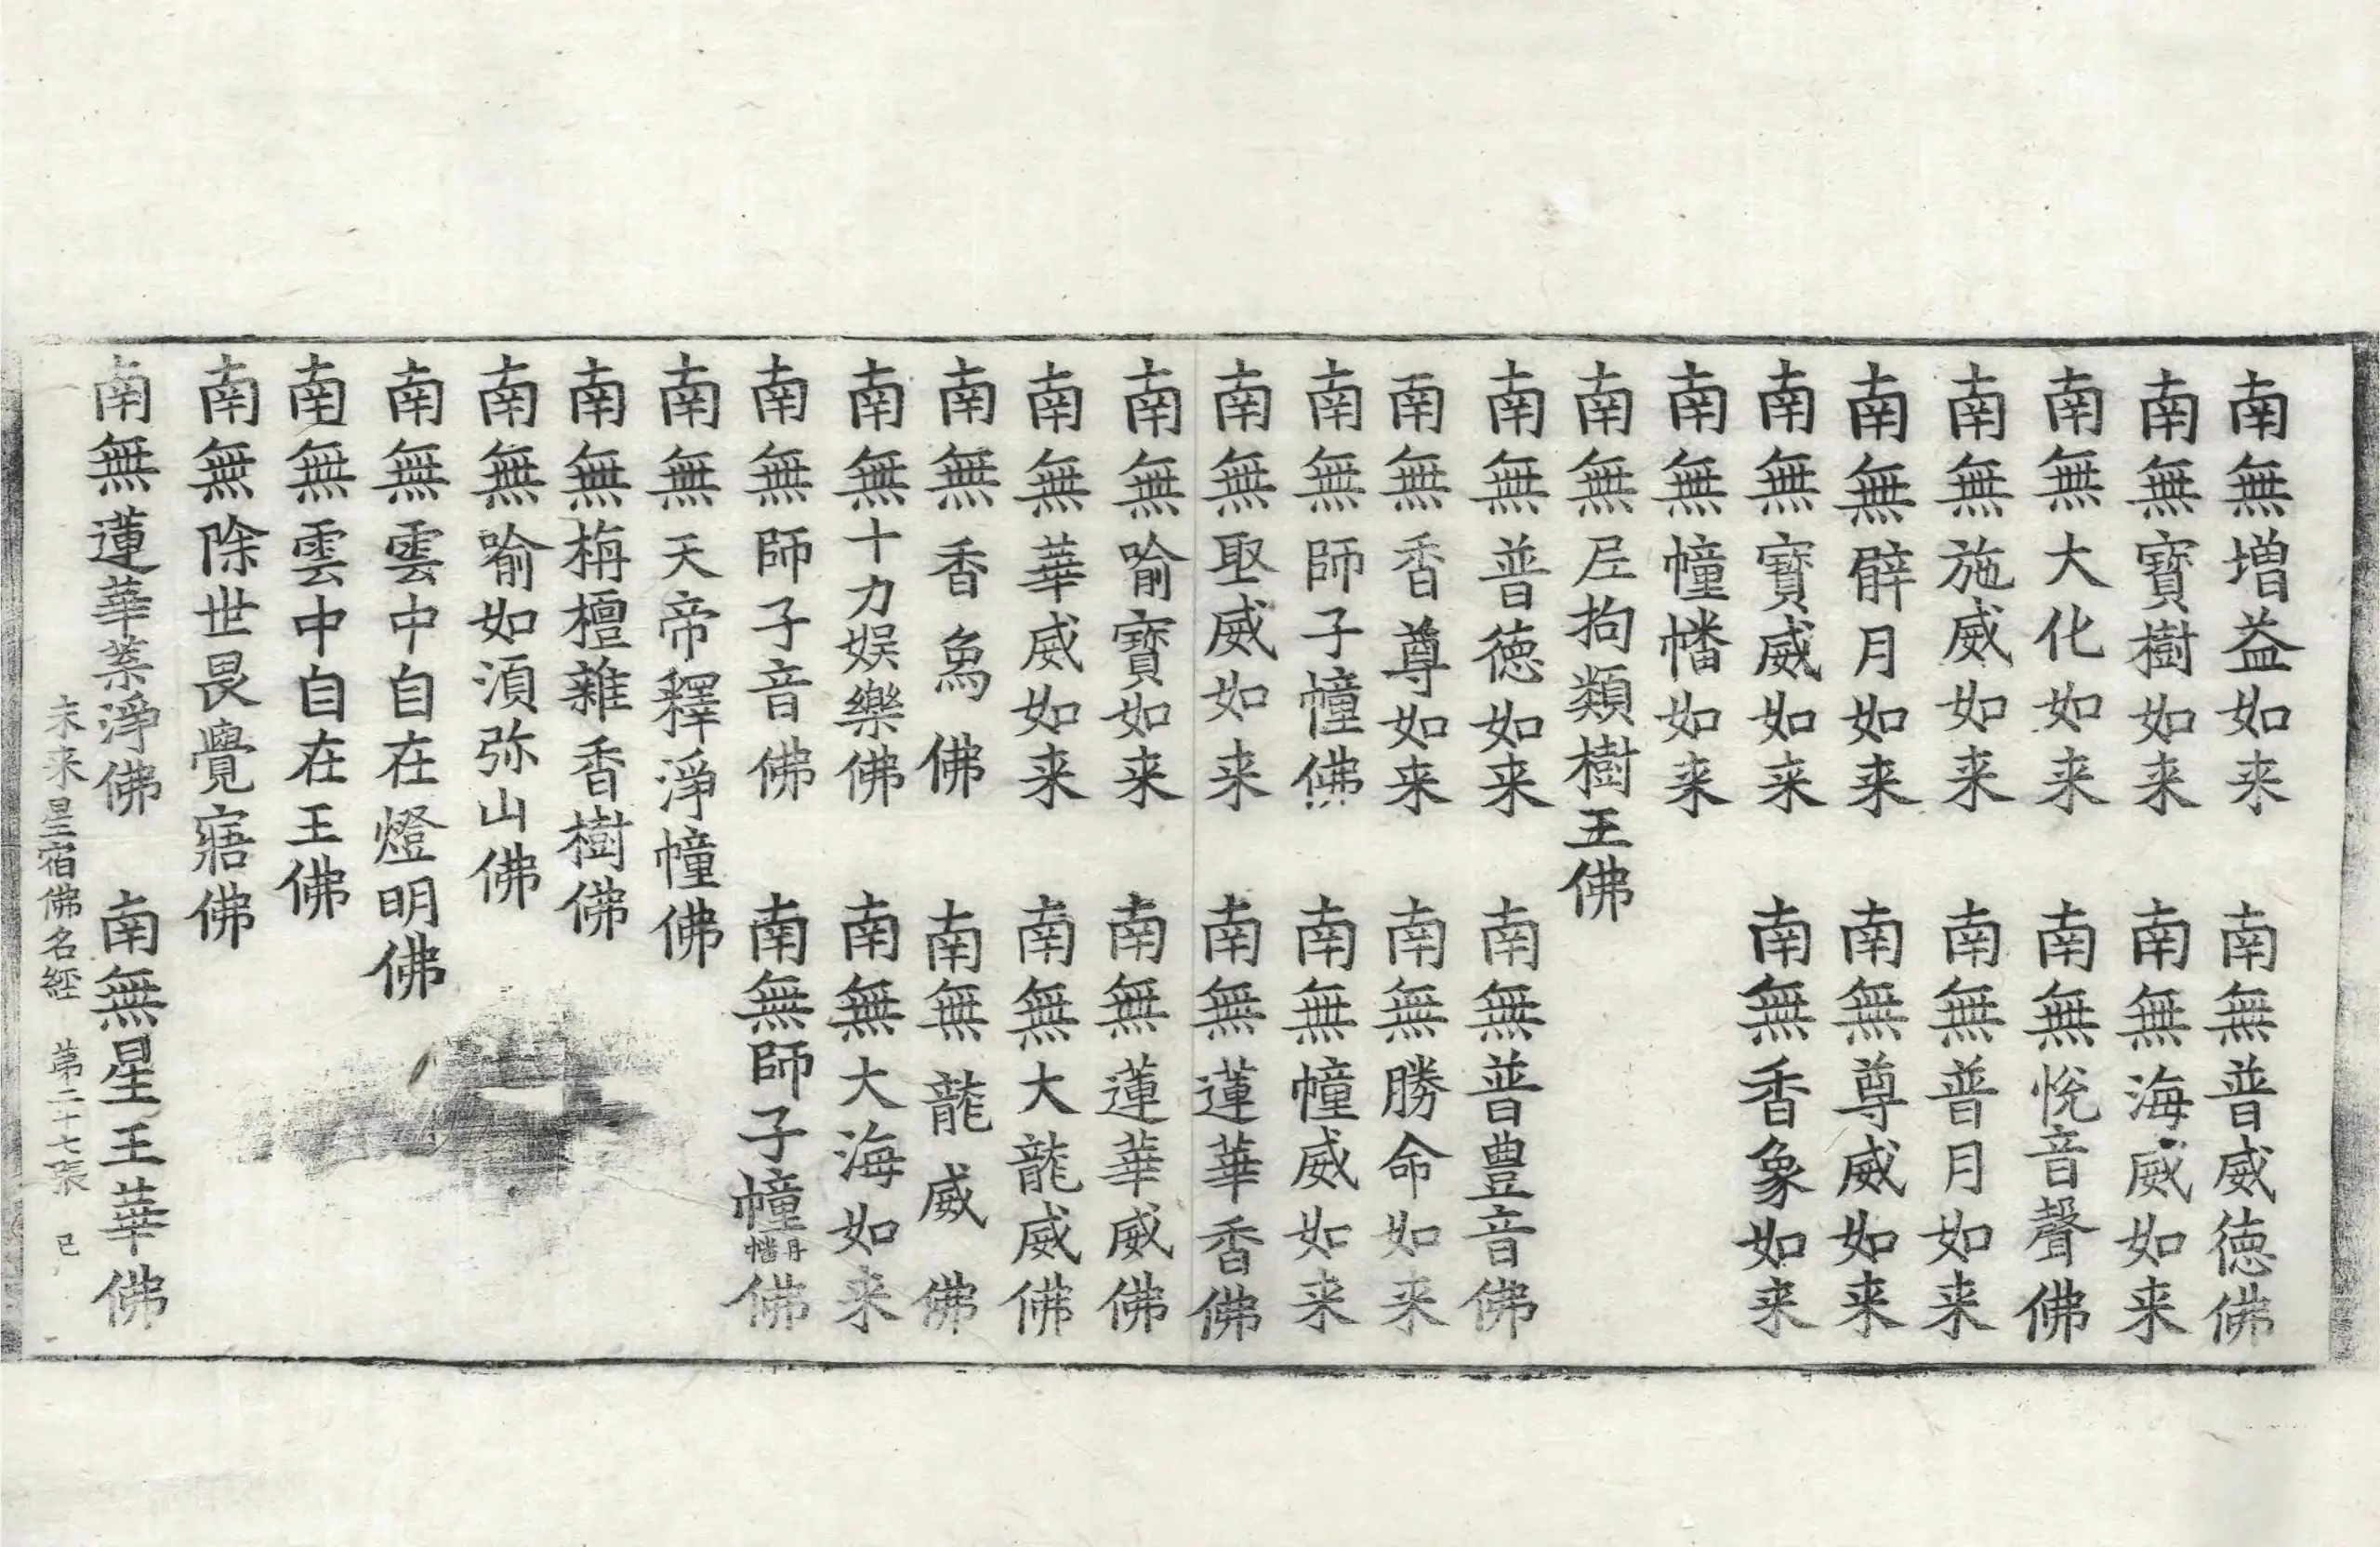 南無增益如来　南無普威德佛
南無寶樹如来　南無海威如来
南無大化如来　南無悅音聲佛
南無施威如来　南無普月如来
南無辟月如来　南無尊威如来
南無寶威如来　南無香象如来
南無幢幡如来
南無尼拘類樹王佛
南無普德如来　南無普豊音佛
南無香尊如来　南無勝命如来
南無師子幢佛　南無幢威如来
南無堅威如来　南無蓮華香佛
南無喻寶如来　南無蓮華威佛
南無華威如来　南無大龍威佛
南無香象佛　南無龍威佛
南無十力娛樂佛　南無大海如来
南無師子音佛　南無師子幢丹幡佛
南無天帝釋淨幢佛
南無栴檀雜香樹佛
南無喻如湏弥山佛
南無雲中自在燈明佛
南無雲中自在王佛
南無除世畏覺寤佛
南無蓮華葉淨佛　南無星王華佛
未来星宿佛名經　苐二十七張　己